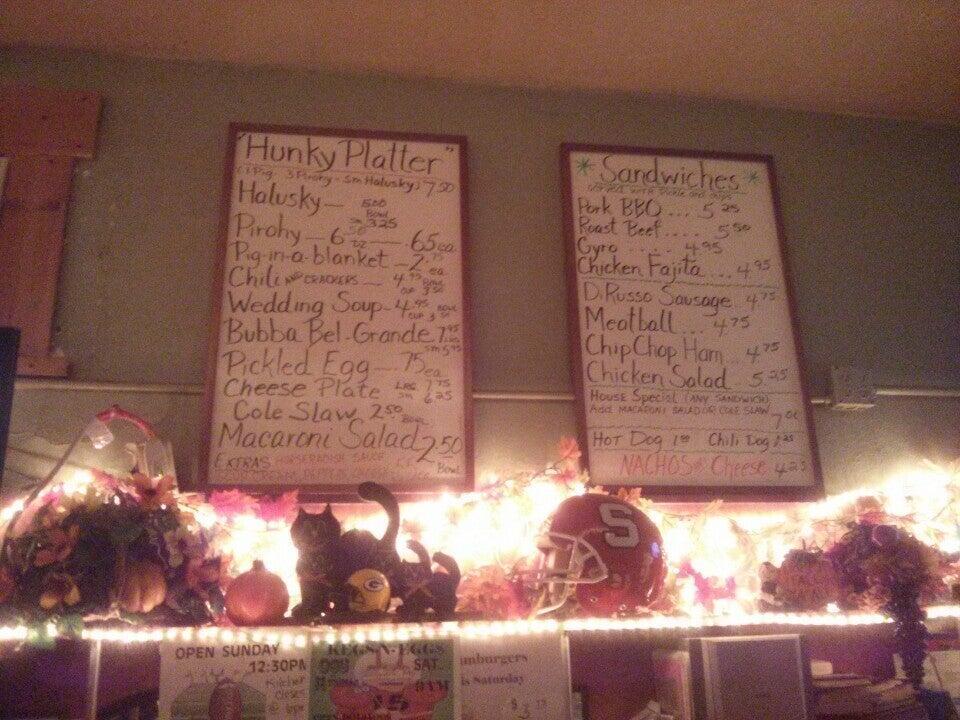 "Hunky Platter"
(1 Pig. 3 Pirohy - Sm Halusky) 7.50
Halusky — 5.00
Bowl
Sm 3.25
Pirohy — 6.50 — .65 ea.
1/2 DZ
Pig-in-a-blanket — 2.75 ea
Chili AND CRACKERS - 4.95 BOWL
CUP 3.50
Wedding Soup - 4.95 BOWL
CUP 3.50
Bubba Bel-Grande 7.95
sm 5.95
Pickled Egg — .75 ea
Cheese Plate LRG 7.75
sm 6.25
Cole Slaw 2.50
BOWL
Macaroni Salad 2.50
Bowl
EXTRAS HORSERADISH SAUCE
* Sandwiches *
Served with Pickle and chips
Pork BBQ ... 5.25
Roast Beef .... 5.50
Gyro .... 4.95
Chicken Fajita ... 4.95
DiRusso Sausage 4.75
Meatball ... 4.75
Chip Chop Ham ... 4.75
Chicken Salad .. 5.25
HOUSE SPECIAL (ANY SANDWICH)
Add MACARONI SALAD OR COLE SLAW
7.00
HOT DOG Chili Dog
NACHOS & Cheese 4.25
G
S
OPEN SUNDAY
12:30PM
Kitchen
closes
KEGS-N-EGGS
SAT.
9AM
15
Hamburgers
is Saturday